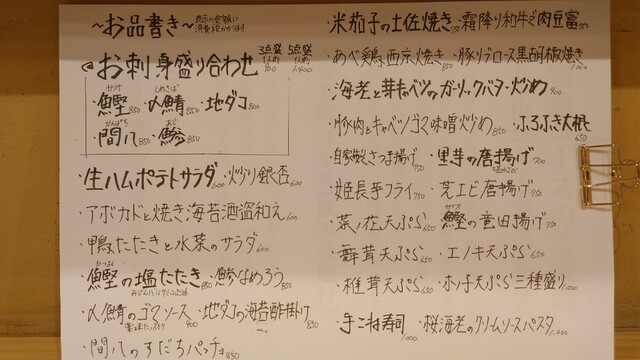 ～お品書き～
お刺身盛り合わせ 3点盛 1人前 5点盛 1人前 1,400
・鰹 850 ・〆鯖 850 ・地ダコ 800
・間八 850 ・鯵 850
・生ハムポテトサラダ 600 ・炒り銀杏 600
・アボカドと焼き海苔酒盗和え 600
・鴨たたきと水菜のサラダ 600
・鰹の塩たたき 850 ・鯵なめろう 850
・〆鯖のゴマソース 900 ・地ダコの海苔酢掛け 850
・間八のすだちカルパッチョ 850
・米茄子の土佐焼き ・霜降り和牛で肉豆富
・あべ鶏西京焼き 850 ・豚リブロース黒胡椒焼き 1,000
・海老と芽キャベツのガーリックバター炒め 900
・豚肉とキャベツゴマ味噌炒め 850 ・ふろふき大根 650
・自家製さつま揚げ 750 ・里芋の唐揚げ 700
・姫長芋フライ 750 ・芝エビ唐揚げ 750
・菜の花天ぷら 650 ・鰹の竜田揚げ 750
・舞茸天ぷら 650 ・エノキ天ぷら 650
・椎茸天ぷら 650 ・キノコ天ぷら三種盛り 1,000
・手こね寿司 1,000 ・桜海老のクリームソースパスタ 1,200